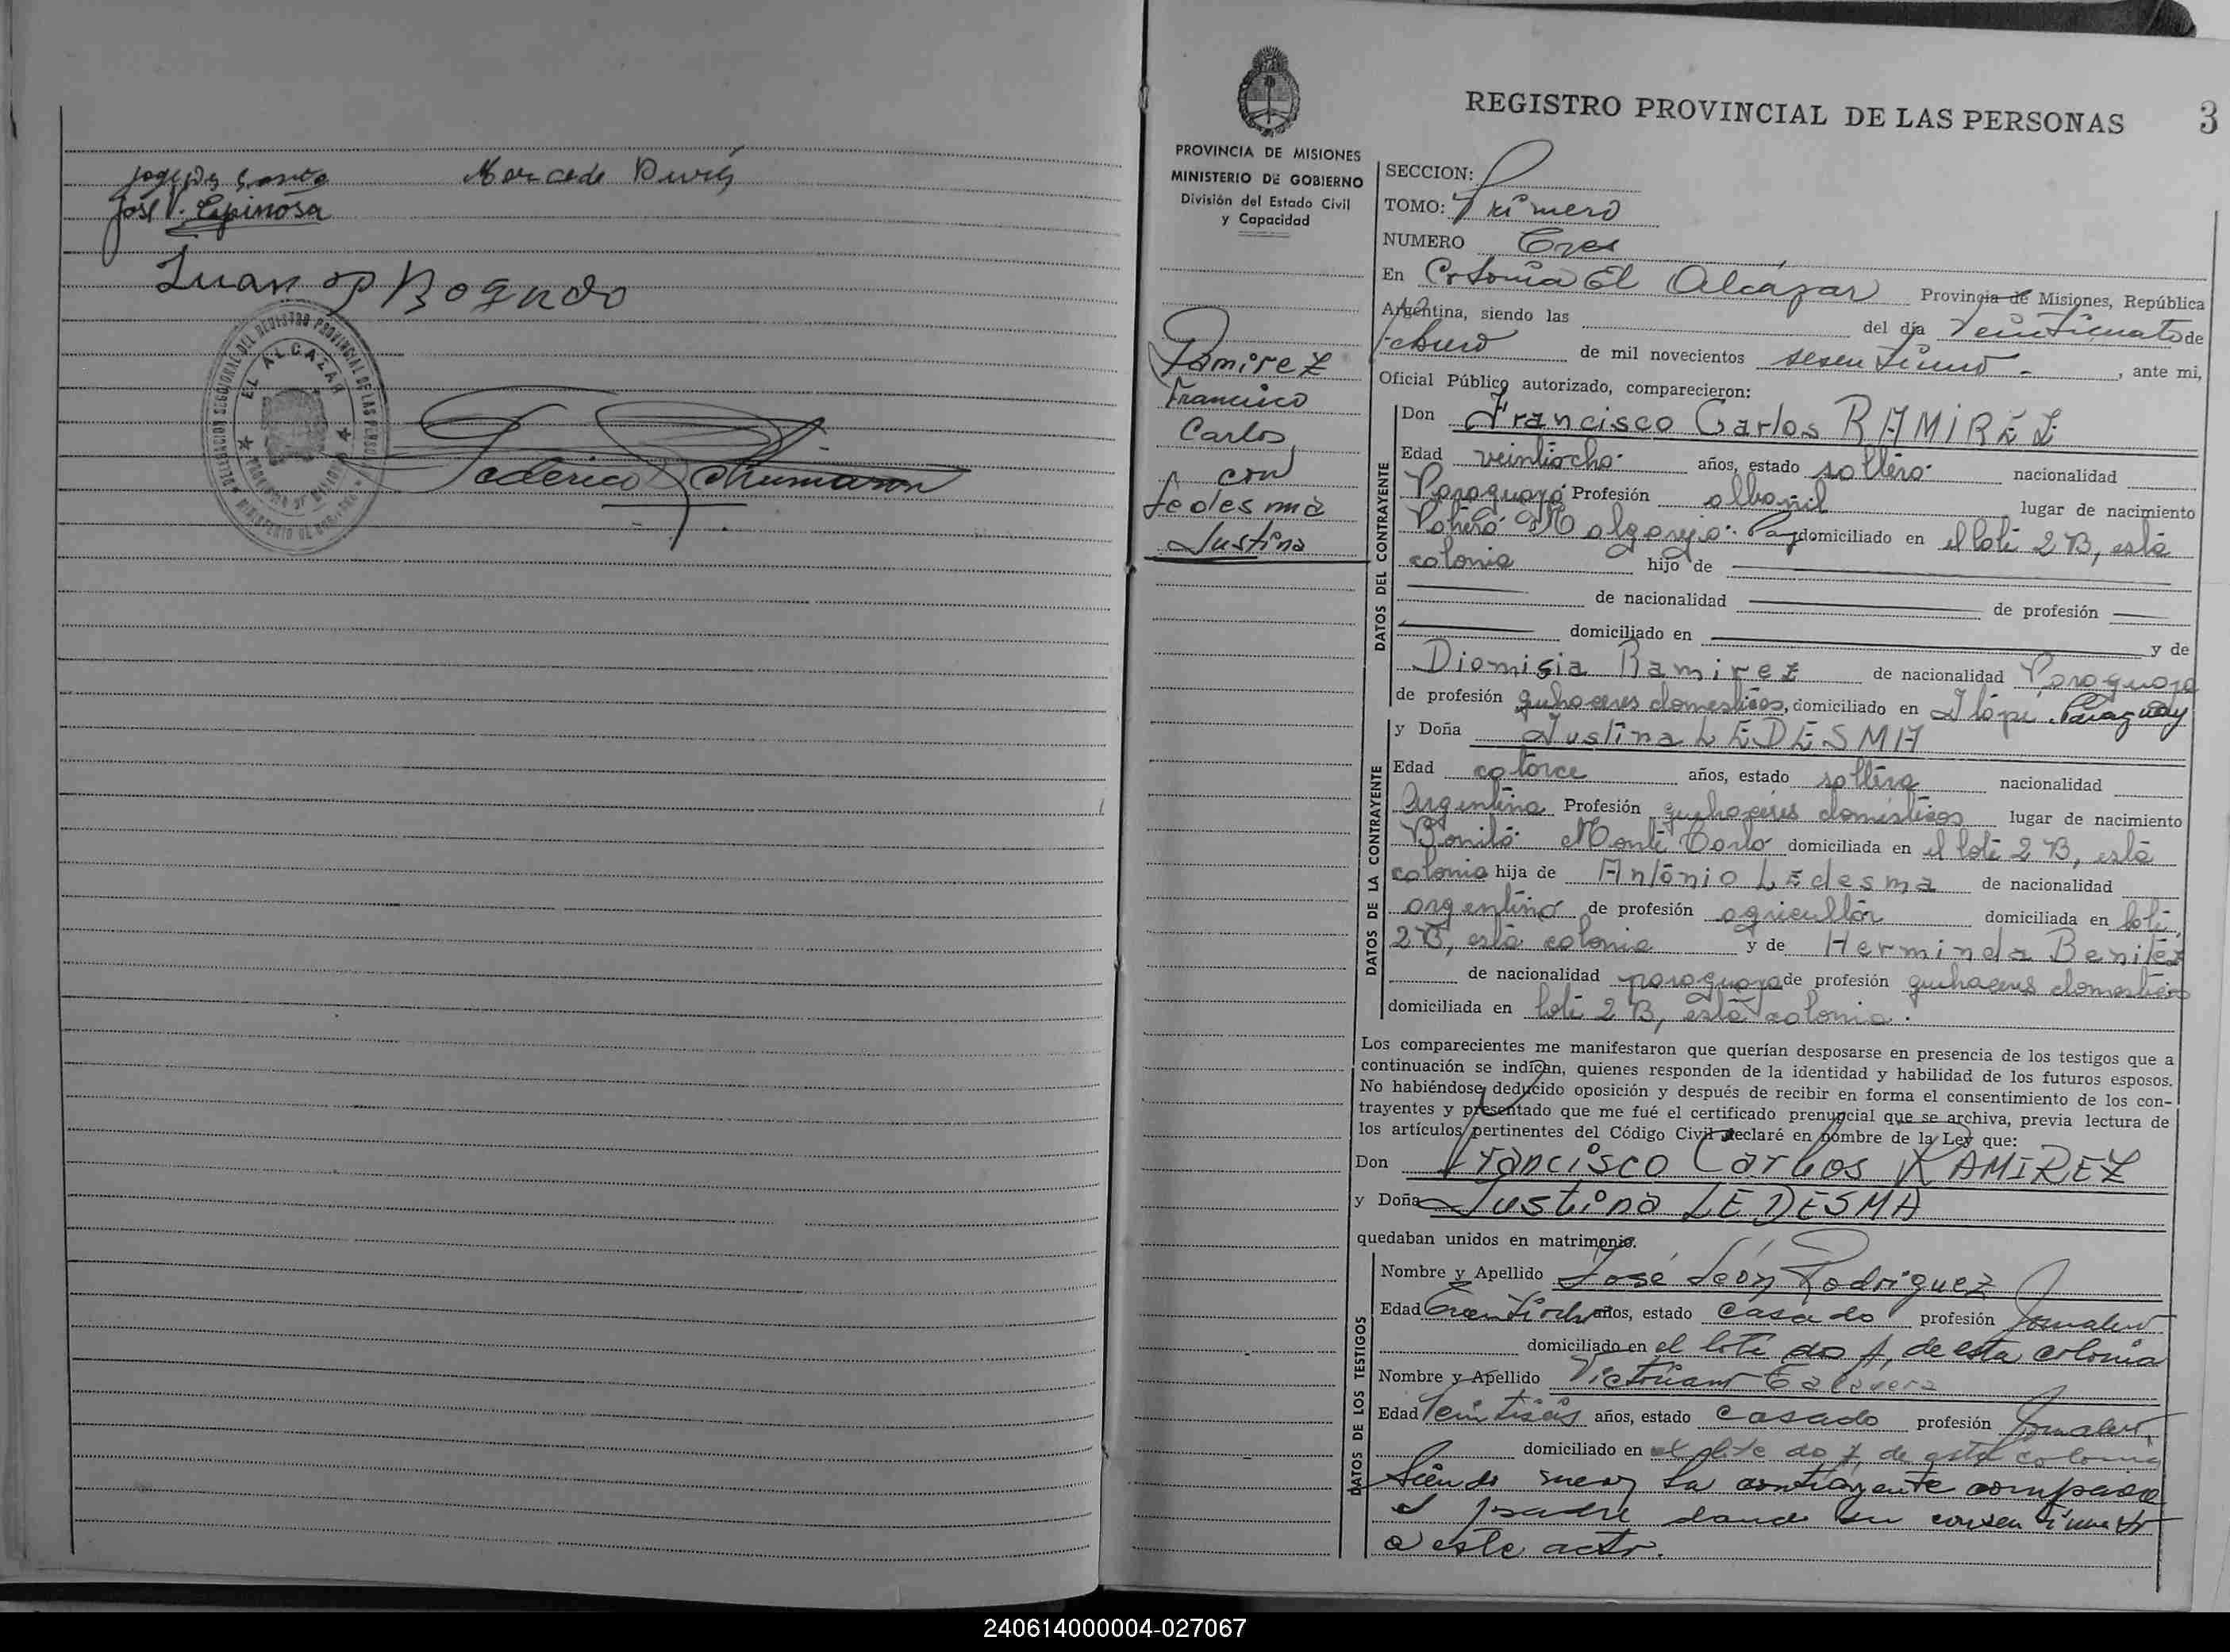 José V. Espinosa
Juan Bogado
DELEGACION SECCIONAL DEL REGISTRO PROVINCIAL DE LAS PERSONAS
EL ALCAZAR
Federico
REGISTRO PROVINCIAL DE LAS PERSONAS 3
PROVINCIA DE MISIONES
MINISTERIO DE GOBIERNO
División del Estado Civil
y Capacidad
Ramirez
Francisco
Carlos
con
Ledesma
Justina
SECCION:
TOMO: Primero
NUMERO Tres
En Colonia El Alcázar Provincia de Misiones, República
Argentina, siendo las del día Veinticuatro de
febrero de mil novecientos sesentiuno - , ante mi,
Oficial Público autorizado, comparecieron:
DATOS DEL CONTRAYENTE
Don Francisco Carlos RAMIREZ
Edad veintiocho años, estado soltero nacionalidad
Paraguaya Profesión albañil lugar de nacimiento
Potrero domiciliado en el lote 2 B, esta
colonia hijo de
de nacionalidad de profesión
domiciliado en y de
Dionisia Ramirez de nacionalidad Paraguaya
de profesión quehaceres domesticos, domiciliado en Paraguay
DATOS DE LA CONTRAYENTE
y Doña Justina LEDESMA
Edad catorce años, estado soltera nacionalidad
Argentina Profesión quehaceres domésticos lugar de nacimiento
Bonito Monte Carlo domiciliada en el lote 2 B, esta
colonia hija de Antonio Ledesma de nacionalidad
argentino de profesión agricultor domiciliada en lote
2 B, esta colonia y de Herminda Benitez
de nacionalidad paraguaya de profesión quehaceres domesticos
domiciliada en lote 2 B, esta colonia.
Los comparecientes me manifestaron que querían desposarse en presencia de los testigos que a
continuación se indican, quienes responden de la identidad y habilidad de los futuros esposos.
No habiéndose deducido oposición y después de recibir en forma el consentimiento de los con-
trayentes y presentado que me fué el certificado prenupcial que se archiva, previa lectura de
los artículos pertinentes del Código Civil declaré en nombre de la Ley que:
Don Francisco Carlos RAMIREZ
y Doña Justina LEDESMA
quedaban unidos en matrimonio.
DATOS DE LOS TESTIGOS
Nombre y Apellido José León Rodriguez
Edad años, estado casado profesión Jornalero
domiciliado en el lote dos A, de esta colonia
Nombre y Apellido Victoriano Talavera
Edad Veintiseis años, estado casado profesión Jornalero
domiciliado en el lote do de esta colonia
Siendo menor la contrayente comparece
el padre dando su consentimiento
a este acto.
240614000004-027067